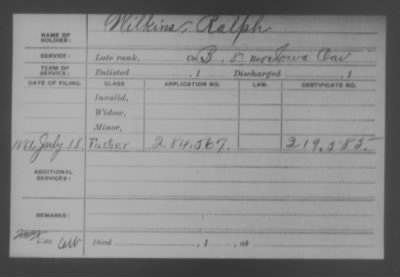 NAME OF SOLDIER: Wilkins, Ralph
SERVICE: Late rank, Co. B, 8" Reg't Iowa Cav
TERM OF SERVICE: Enlisted , 1 Discharged , 1
DATE OF FILING. CLASS. APPLICATION NO. LAW. CERTIFICATE NO.
Invalid,
Widow,
Minor,
July 18. Father 284.567. 219.585.
ADDITIONAL SERVICES:
REMARKS:
Died , 1 , at